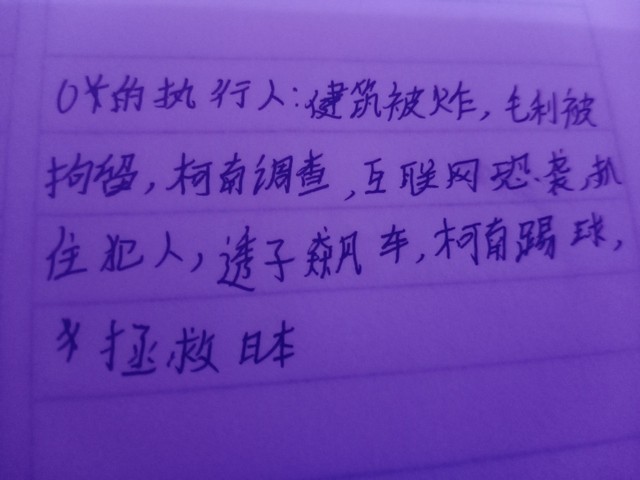 0的执行人:健筑被炸,毛利被
拘留,柯南调查,互联网恐袭,抓
住犯人,透子飙车,柯南踢球,
拯救日本